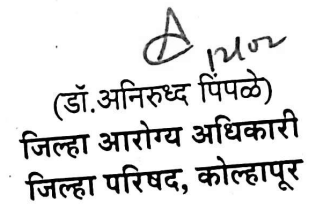 12/02
(डॉ.अनिरुध्द पिंपळे)
जिल्हा आरोग्य अधिकारी
जिल्हा परिषद, कोल्हापूर